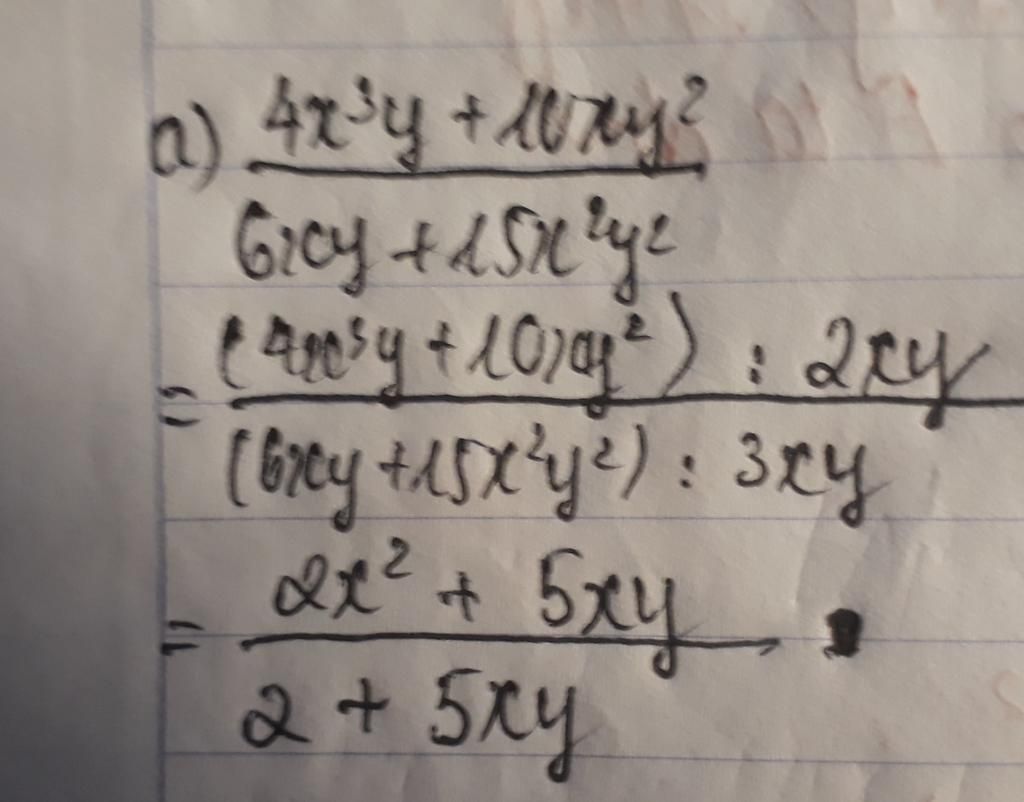 a) (4x³y + 10xy²) / (6xy + 15x²y²)
= ((4x³y + 10xy²) : 2xy) / ((6xy + 15x²y²) : 3xy)
= (2x² + 5xy) / (2 + 5xy)